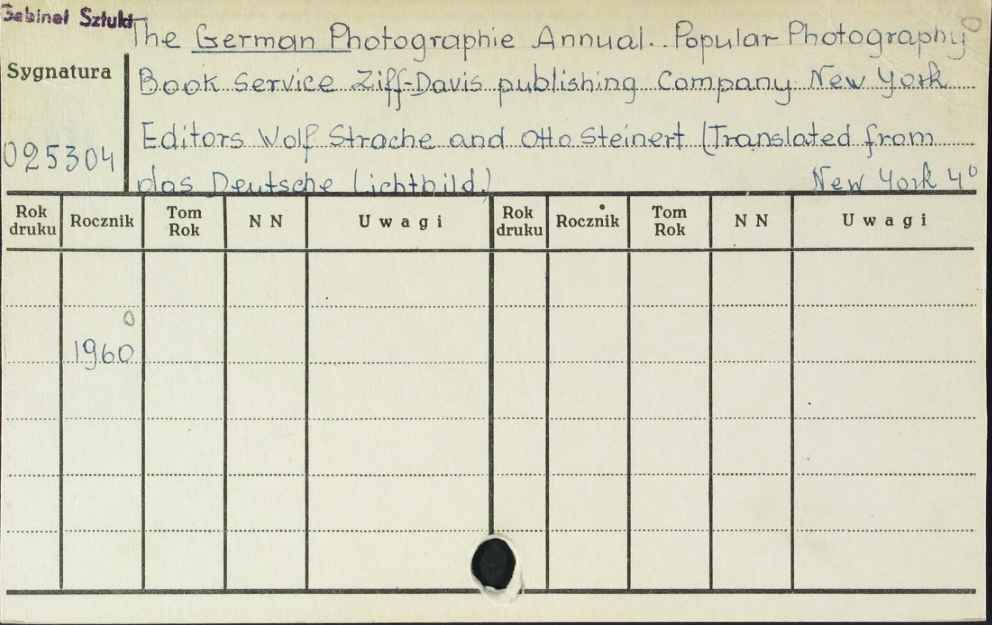 Gabinet Sztuki
The German Photographie Annual. Popular Photography
Sygnatura
Book Service Ziff-Davis publishing Company New York
Editors Wolf Strache and Otto Steinert (Translated from
025304
das Deutsche Lichtbild.)
New York 4°
Rok druku Rocznik Tom Rok N N Uwagi Rok druku Rocznik Tom Rok N N Uwagi
0
1960